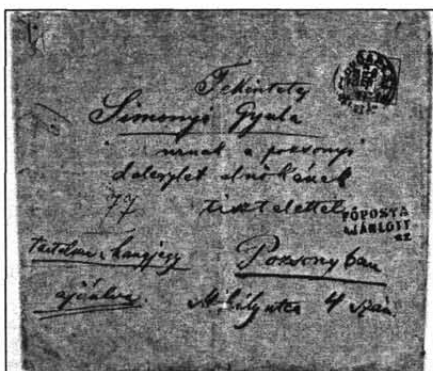 Tekintetes
Simonyi Gyula
urnak a pozsonyi
dalegylet elnökének
77 tisztelettel
FŐPOSTA
AJÁNLOTT
tartalma: hangjegy Pozsonyban
ajánlva. utca 4 szám.